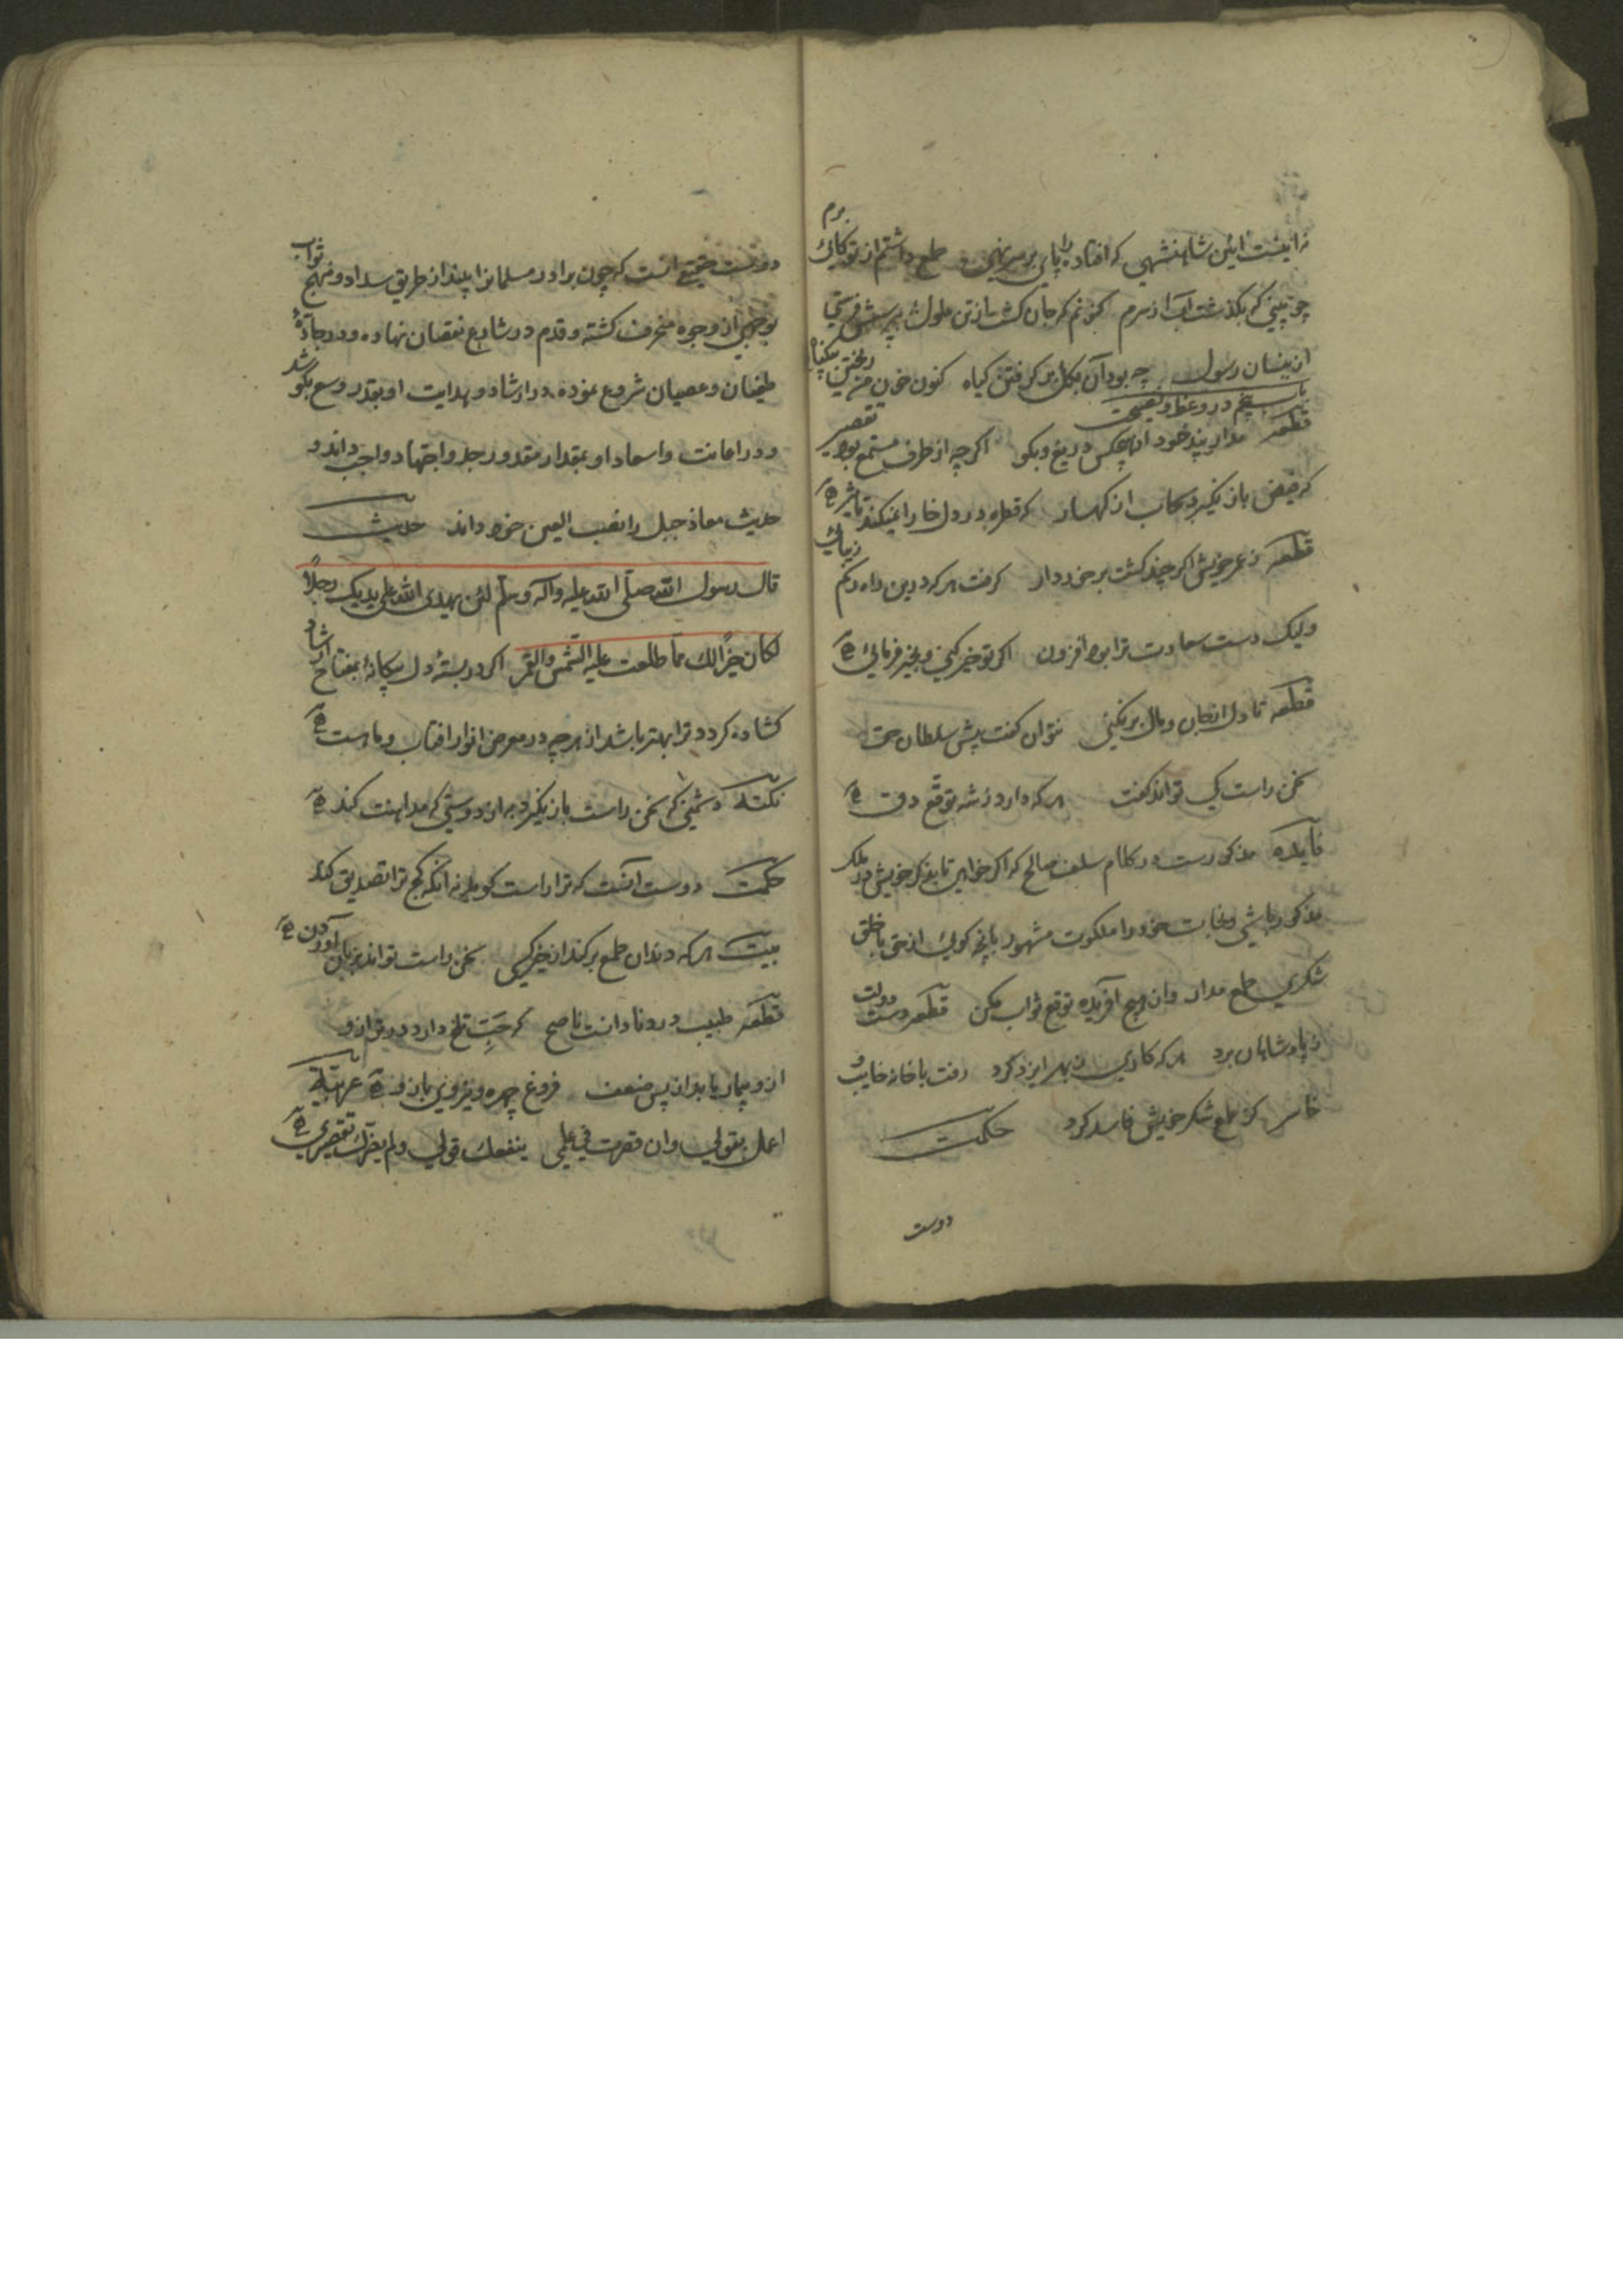 نه اینست آیین شاهنشهی که افتاده را پای بر سر نهی طمع داشتم از تو کایی برم
چو بینی که بگذشت آب از سرم کنونم که جان گشت از تن ملول بپرسش فرستی
ازینسان رسول چه بود آن بگل برگرفتن گیاه کنون خون من ریختن بیگناه
باب پنجم در وعظ و نصیحت
قطعه مدار پند خود از هیچکس دریغ و بگو اگر چه از طرف مستمع بود تقصیر
که فیض باز نگیرد سحاب از کهسار که قطره در دل خارا نمیکند تاثیر
قطعه ز عمر خویش اگر چند گشت برخوردار گرفت هر که درین راه کم زیانی
ولیک دست سعادت ترا بود افزون اگر تو خیر کنی و بخیر فرمایی
قطعه تا دل از جان و مال بر نکنی نتوان گفت پیش سلطان حق
سخن راست کی تواند گفت هر که دارد ز شه توقع دق
فایده مذکورست در کلام سلف صالح که اگر خواهی تا بذکر خویش در ملک
مذکور باشی و بخابت خود را ملکوت مشهور بانچه گویی از حق با خلق
شکری طمع مدار وان هیچ آفریده توقع ثواب مکن قطعه دست دولت
ز پادشاهان برد هر که کاری ز بهر ایزد کرد رفت با خانه خایب و
خاسر کز طمع شکر خویش فاسد کرد حکمت
دوست
دوست حقیقی آنست که چون برادر مسلمانرا بیند از طریق سداد و منهج ثواب
بوجهی از وجوه منحرف گشته و قدم در شارع نقصان نهاده و در جادهٔ
طغیان و عصیان شروع نموده در ارشاد و هدایت او بقدر وسع بکوشد
و در اعانت و اسعاد او بمقدار مقدور جد و اجتهاد واجب داند و
حدیث معاذ جبل را نصب العین خود داند حدیث
قال رسول الله صلی الله علیه وآله وسلم لئن یهدی الله علی یدیک رجلاً
لکان خیراً لک مما طلعت علیه الشمس والقمر اگر در بستهٔ دل بیگانهٔ بمفتاح ارشاد
گشاده گردد ترا بهتر باشد از هر چه در معرض انوار آفتاب و ماهست
نکته دشمنی که سخن راست باز نگیرد به از دوستی که مداهنت کند
حکمت دوست آنست که ترا راست گوید نه آنکه کج ترا تصدیق کند
بیت هر که دندان طمع بر کند از خیر کسی سخن راست تواند بزبان آوردن
قطعه طبیب درد نادانست ناصح که حب تلخ دارد در ترازو
ازو بیمار یابد از پس ضعف فروغ چهره و نیروی بازو عربیة
اعمل بقولی وان قصرت فی عملی ینفعک قولی ولم یضررک تقصیری